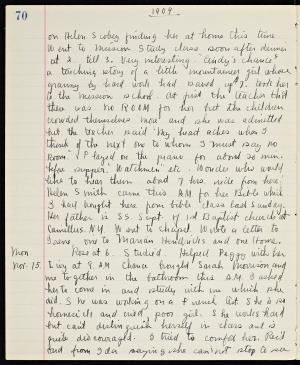 70
1909
on Helen Scobey finding her at home this time
Went to Mission Study class soon after dinner
at 2 till 3. Very interesting. "Cindy's Chance"
a touching story of a little mountaineer girl whose
granny by hard work had saved up $7. took her
to the mission school. At first the teacher said
there was no ROOM for her but the children
crowded themselves more and she was admitted
but the teacher said "My heart aches when I
think of the next one to whom I must say no
Room." Played on the piano for about 20 min.
before supper. "Watchmen" etc. Wonder who would
like to hear them about 7 hrs ride from here.
Helen Smith came this A.M. for her Bible which
I had bought here from bible class last Sunday.
Her father is S.S. Supt. of 1st Baptist church at
Camillus. N.Y. Went to chapel. Wrote a letter to
Irene one to Marian Hendricks and one Home.
Mon Rose at 6. Studied. Helped Peggy with her
Nov. 15. Livy at 9. A.M. Chanced to see Sarah Morrison and
me together in the bathroom this A.M. I asked
her to come in and study with me which she
did. She was working on a French test. She is so
homesick and cried, poor girl. She works hard
but can't distinguish herself in class and is
quite discouraged. I tried to comfort her. Rec'd
card from Ida saying she can't stop to see